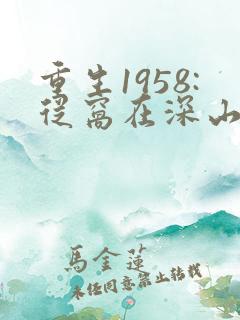 重生1958:
從窩在深山
馬金蓮
未經同意禁止轉載